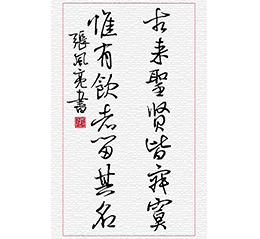 古来聖贤皆寂寞
惟有飲者留其名
張風亮書